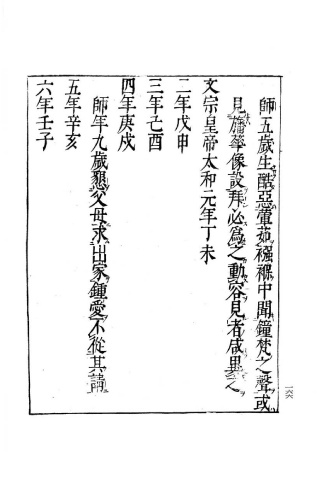 師五歲生酷惡葷茹襁褓中聞鐘梵之聲或
見旛華像設拜必為之動容見者咸異之
文宗皇帝太和元年丁未
二年戊申
三年己酉
四年庚戌
師年九歲懇父母求出家鍾愛不從其請
五年辛亥
六年壬子
一六六